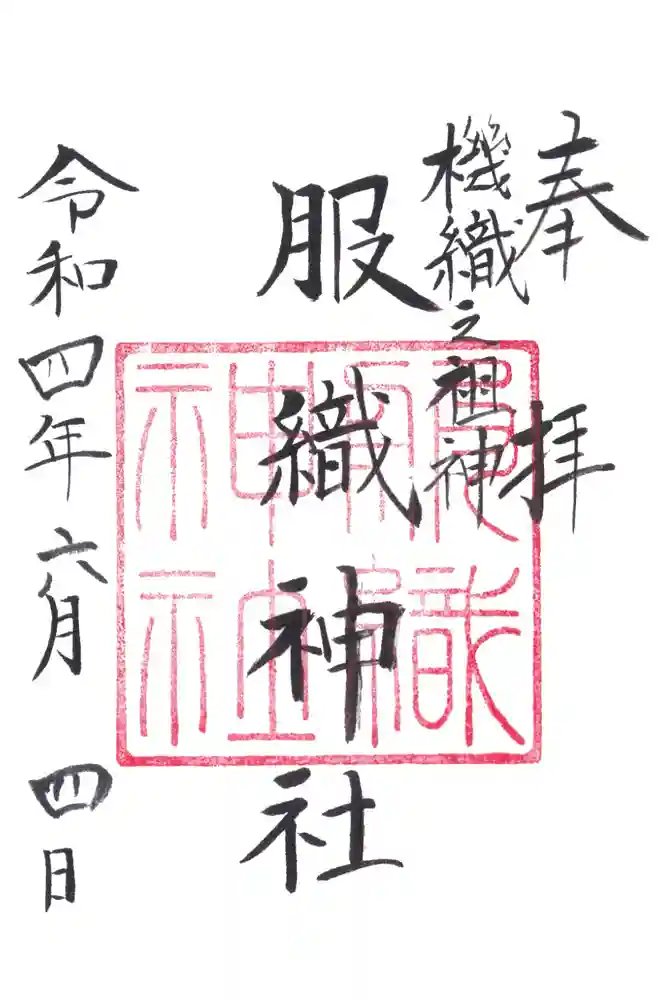 奉拝
機織之祖神
服織神社
服織神社
令和四年六月四日